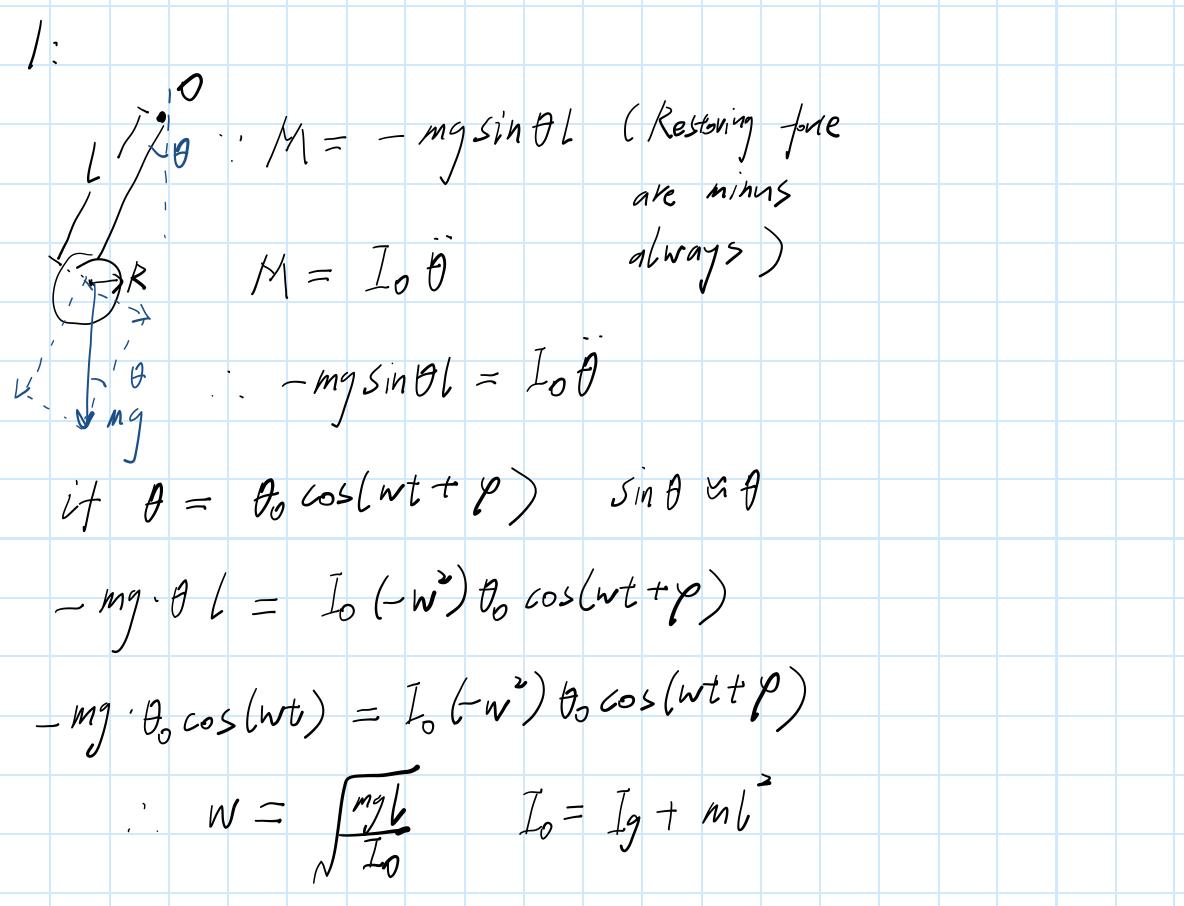 1:
O
θ
L
R
θ
mg
∵ M = - mg sin θ l (Restoring force
are minus
always)
M = I₀ θ̈
∴ -mg sin θ l = I₀ θ̈
if θ = θ₀ cos(wt + φ) sin θ ≈ θ
- mg · θ l = I₀ (-w²) θ₀ cos(wt + φ)
- mg · θ₀ cos(wt) = I₀ (-w²) θ₀ cos(wt + φ)
∴ w = √(mgl / I₀) I₀ = Ig + ml²